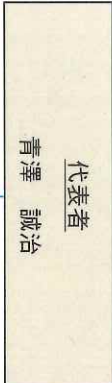 代表者
青澤　誠治